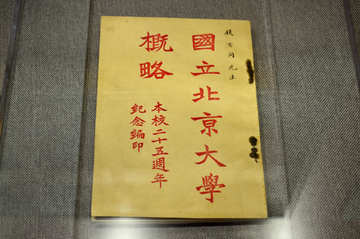 錢玄同先生
國立北京大學
概略
本校二十五週年
紀念編印